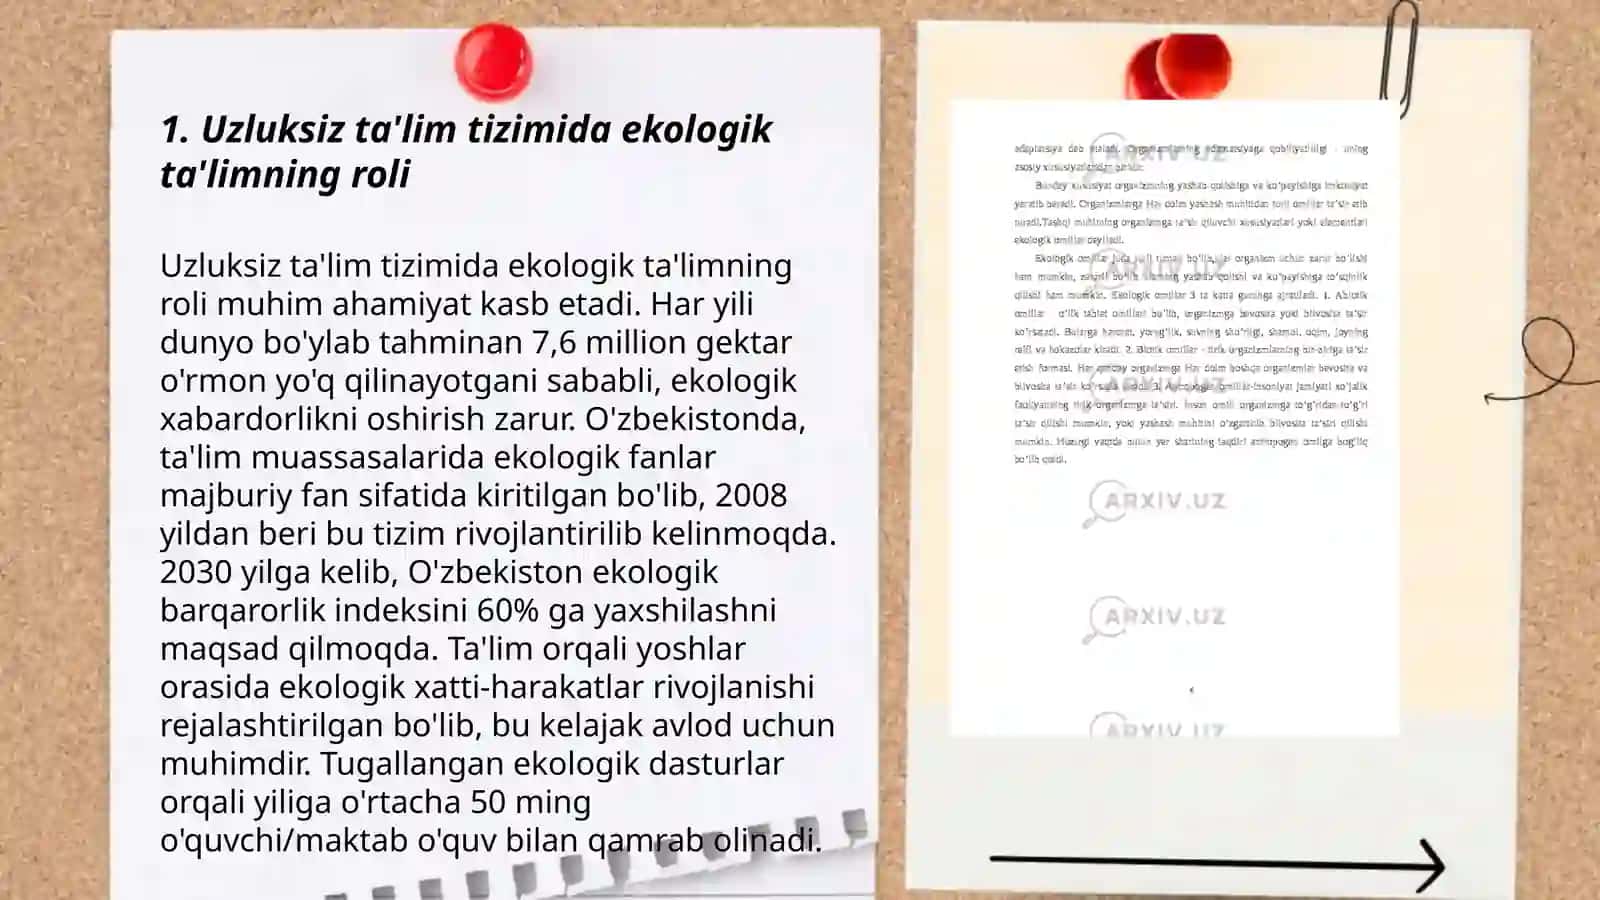 1. Uzluksiz ta'lim tizimida ekologik
ta'limning roli
Uzluksiz ta'lim tizimida ekologik ta'limning
roli muhim ahamiyat kasb etadi. Har yili
dunyo bo'ylab tahminan 7,6 million gektar
o'rmon yo'q qilinayotgani sababli, ekologik
xabardorlikni oshirish zarur. O'zbekistonda,
ta'lim muassasalarida ekologik fanlar
majburiy fan sifatida kiritilgan bo'lib, 2008
yildan beri bu tizim rivojlantirilib kelinmoqda.
2030 yilga kelib, O'zbekiston ekologik
barqarorlik indeksini 60% ga yaxshilashni
maqsad qilmoqda. Ta'lim orqali yoshlar
orasida ekologik xatti-harakatlar rivojlanishi
rejalashtirilgan bo'lib, bu kelajak avlod uchun
muhimdir. Tugallangan ekologik dasturlar
orqali yiliga o'rtacha 50 ming
o'quvchi/maktab o'quv bilan qamrab olinadi.
adaptatsiya deb ataladi. Organizmlarning adaptatsiyaga qobiliyatliligi - uning
asosiy xususiyatlaridan biridir.
Bunday xususiyat organizmning yashab qolishiga va ko'payishiga imkoniyat
yaratib beradi. Organizmlarga Har doim yashash muhitidan turli omillar ta'sir etib
turadi.Tashqi muhitning organizmga ta'sir qiluvchi xususiyatlari yoki elementlari
ekologik omillar deyiladi.
Ekologik omillar juda xilma bo'lib,ular organizm uchun zarur bo'lishi
ham mumkin, zararli bo'lib ularning yashab qolishi va ko'payishiga to'sqinlik
qilishi ham mumkin. Ekologik omillar 3 ta katta guruhga ajratiladi. 1. Abiotik
omillar o'lik tabiat omillari bo'lib, organizmga bevosita yoki bilvosita ta'sir
ko'rsatadi. Bularga harorat, yorug'lik, suvning sho'rligi, shamol, oqim, joyning
relifi va hokazolar kiradi. 2. Biotik omillar - tirik organizmlarning bir-biriga ta'sir
etish formasi. Har qanday organizmga Har doim boshqa organizmlar bevosita va
bilvosita ta'sir ko'rsatib turadi. 3. Antropogen omillar-insoniyat jamiyati xo'jalik
faoliyatining tirik organizmga ta'siri. Inson omili organizmga to'g'ridan-to'g'ri
ta'sir qilishi mumkin, yoki yashash muhitini o'zgartirib bilvosita ta'siri qilishi
mumkin. Hozirgi vaqtda butun yer sharining taqdiri antropogen omilga bog'liq
bo'lib qoldi.
ARXIV.UZ
ARXIV.UZ
ARXIV.UZ
ARXIV.UZ
ARXIV.UZ
ARXIV.UZ